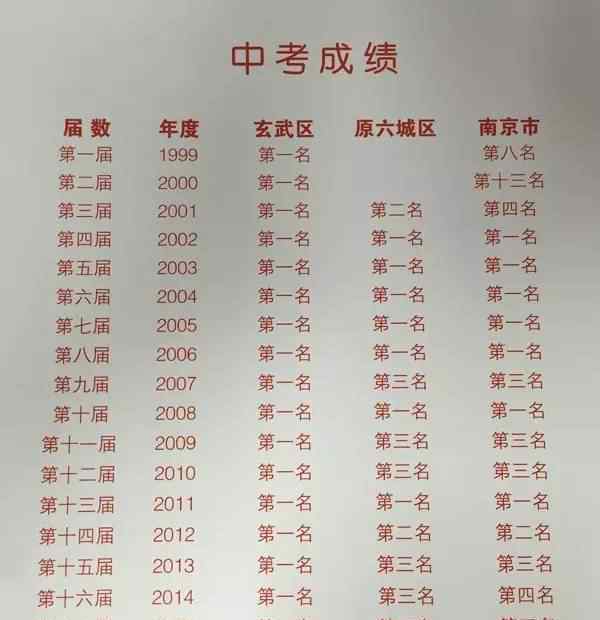 中考成绩
届数 年度 玄武区 原六城区 南京市
第一届 1999 第一名 第八名
第二届 2000 第一名 第十三名
第三届 2001 第一名 第二名 第四名
第四届 2002 第一名 第一名 第一名
第五届 2003 第一名 第一名 第一名
第六届 2004 第一名 第一名 第一名
第七届 2005 第一名 第一名 第一名
第八届 2006 第一名 第一名 第一名
第九届 2007 第一名 第三名 第三名
第十届 2008 第一名 第一名 第一名
第十一届 2009 第一名 第三名 第三名
第十二届 2010 第一名 第三名 第三名
第十三届 2011 第一名 第一名 第一名
第十四届 2012 第一名 第二名 第二名
第十五届 2013 第一名 第三名 第三名
第十六届 2014 第一名 第三名 第四名